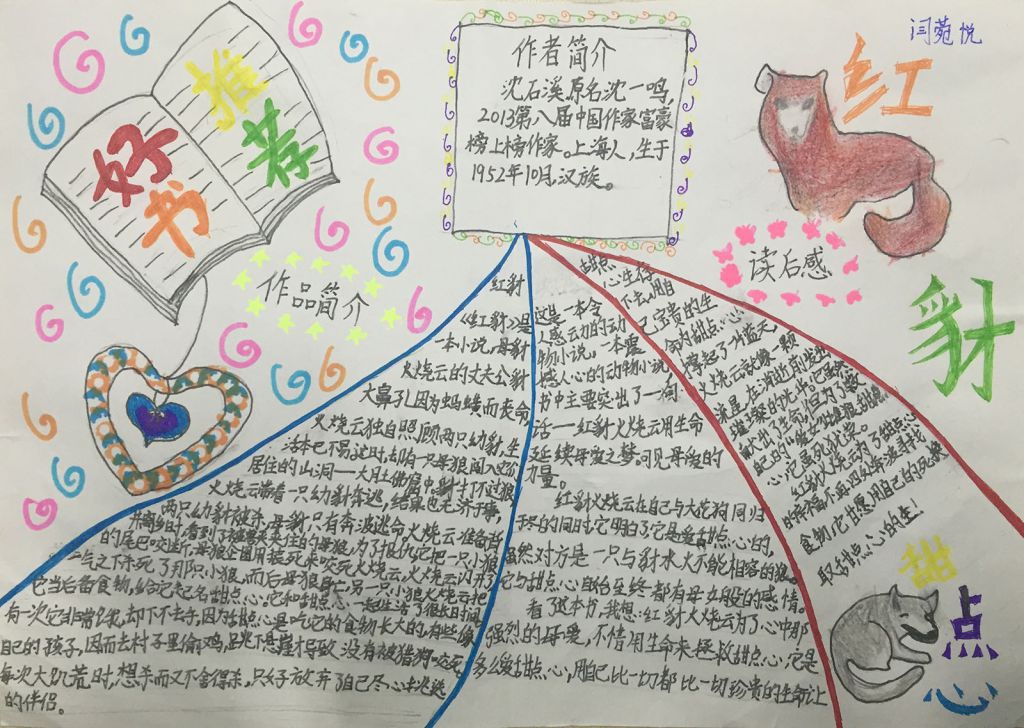 闫菀悦
好书
推荐
作者简介
沈石溪原名沈一鸣,
2013第八届中国作家富豪
榜上榜作家。上海人,生于
1952年10月,汉族。
作品简介
红豺
《红豺》是
一本小说,母豺
火烧云的丈夫公豺
大鼻孔因为蚂蟥而丧命,
火烧云独自照顾两只幼豺,生
活本已不易,这时却有一只母狼闯入它们
居住的山洞一大月土佛屈中,豺打不过狼
火烧云带着一只幼豺奔逃,结果也无济于事,
两只幼豺被杀,母豺只有奔波逃命,火烧云准备离
开离乡时,看到了被夹住的母狼,为了报仇,它把一只小狼
的尾巴咬断,母狼企图用接死来咬死火烧云,火烧云闪开了
一气之下炸死了那只小狼,而后母狼身亡,另一只小狼火烧云把
它当后备食物,给它起名甜点心。它和甜点心一起生活了很长时间,
有一次它非常饿,却下不去手,因为甜点心是吃它的食物长大的,有些像
自己的孩子,因而去村子里偷鸡,跳下悬崖才导致没有被猎狗咬死
每次大饥荒时,想杀而又不舍得杀,只好放弃了自己尽心去选
的伴侣。
读后感
这是一本令
人感云力的动
物小说。一本震
感人心的动物小说
书中主要突出了一句:
活一红豺火烧云用生命
延续母爱之梦。可见母爱的
力量。
红豺火烧云在自己与大花狗同归
于尽的同时,它明白了,它是爱甜点心的,
虽然对方是一只与豺水火不能相容的狼。
它与甜点心自始至终都有母女般的感情。
看了这本书,我想:红豺火烧云为了心中那
强烈的母爱,不惜用生命来拯救甜点心,它是
多么爱甜点心,用自己比一切都比一切珍贵的生命让
甜点
心生存
下去,用自
己宝贵的生
命为甜点心
撑起了一片蓝天,
火烧云就像一颗
流星,在消逝前发出
璀璨的光芒,它虽然
献出了生命,但为了救
心,它虽死犹荣。
红豺火烧云为了甜点心
的幸福不再四处奔波寻找
食物,它甘愿用自己的死换
取甜点心的生!
红
豺
甜
点
心